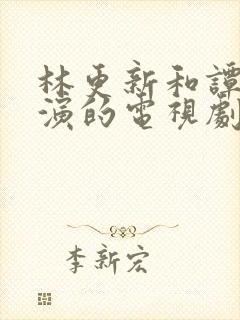 林更新和譚
演的電視劇
李新宏